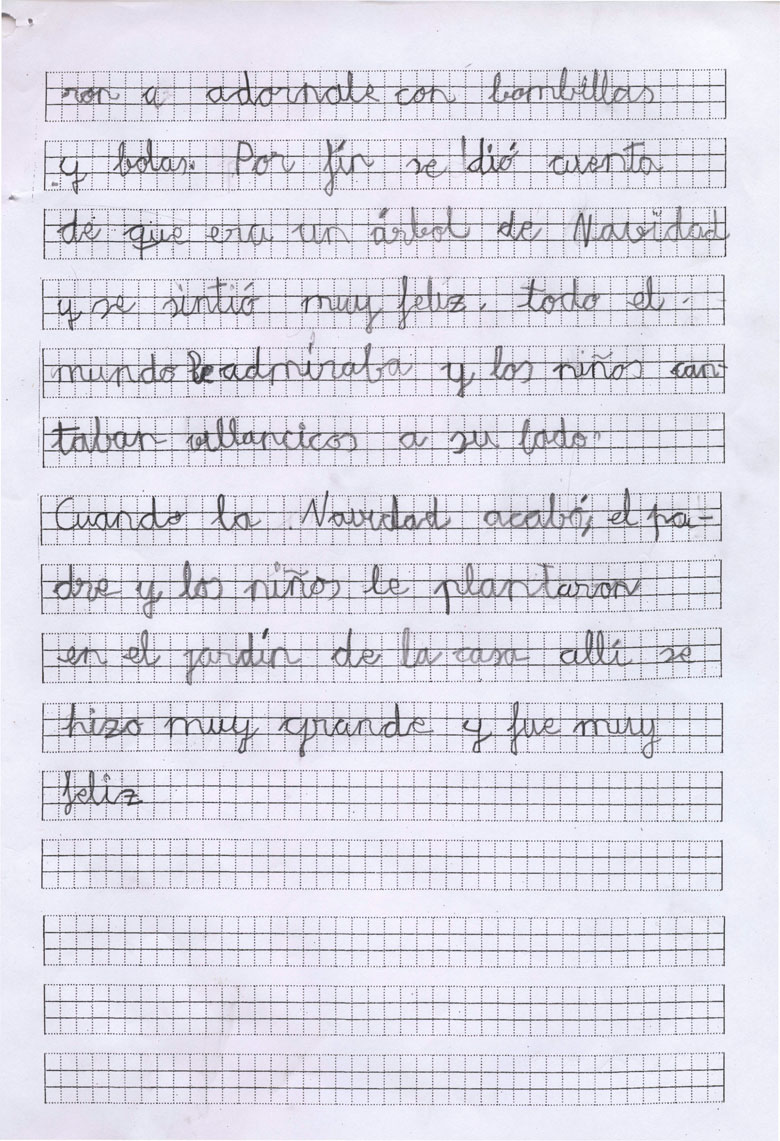 ron a adornale con bombillas
y bolas. Por fín se dió cuenta
de que era un árbol de Navidad
y se sintió muy feliz. todo el
mundo le admiraba y los niños can-
taban villancicos a su lado.
Cuando la Navidad acabó, el pa-
dre y los niños le plantaron
en el jardín de la casa allí se
hizo muy grande y fue muy
feliz